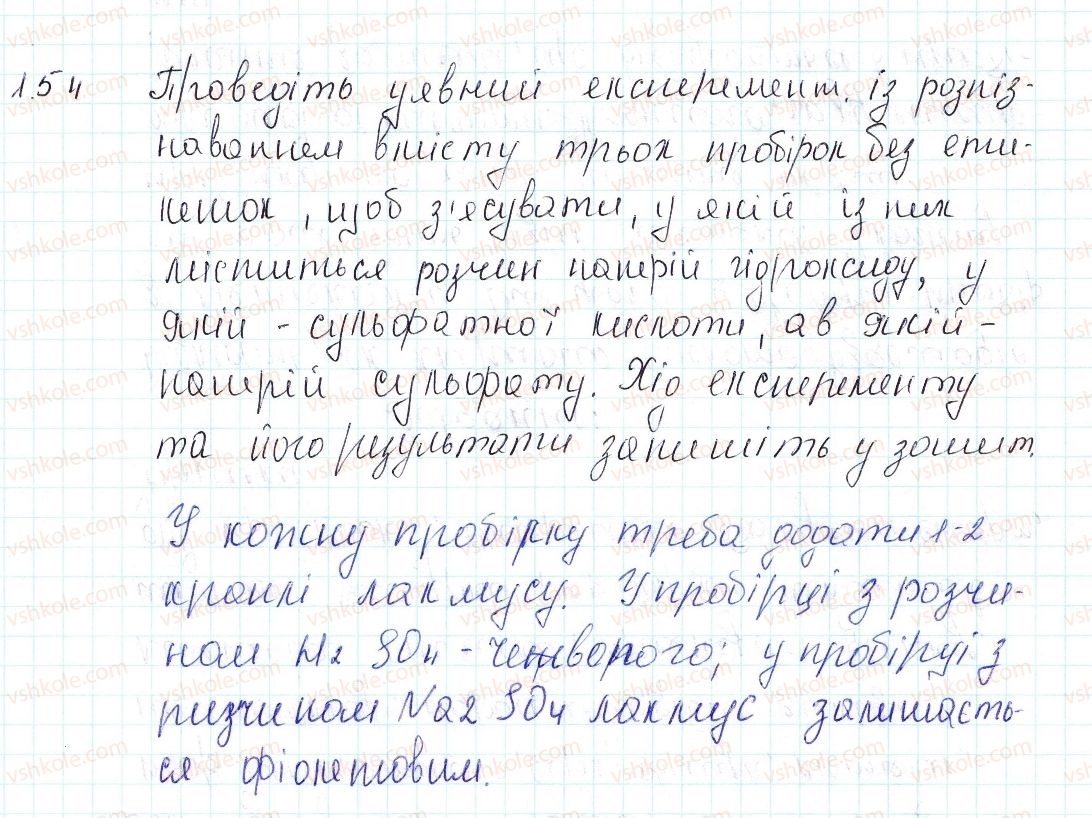 1.54 Проведіть уявний експеремент із розпіз-
наванням вмісту трьох пробірок без ети-
кеток, щоб з'ясувати, у якій із них
міститься розчин натрій гідроксиду, у
якій - сульфатної кислоти, а в якій -
натрій сульфату. Хід експеременту
та його ризультати запишіть у зошит.
У кожну пробірку треба додати 1-2
краплі лакмусу. У пробірці з розчи-
ном H2 SO4 - червоного; у пробірці з
ризчином Na2 SO4 лакмус залишаєть-
ся фіолетовим.